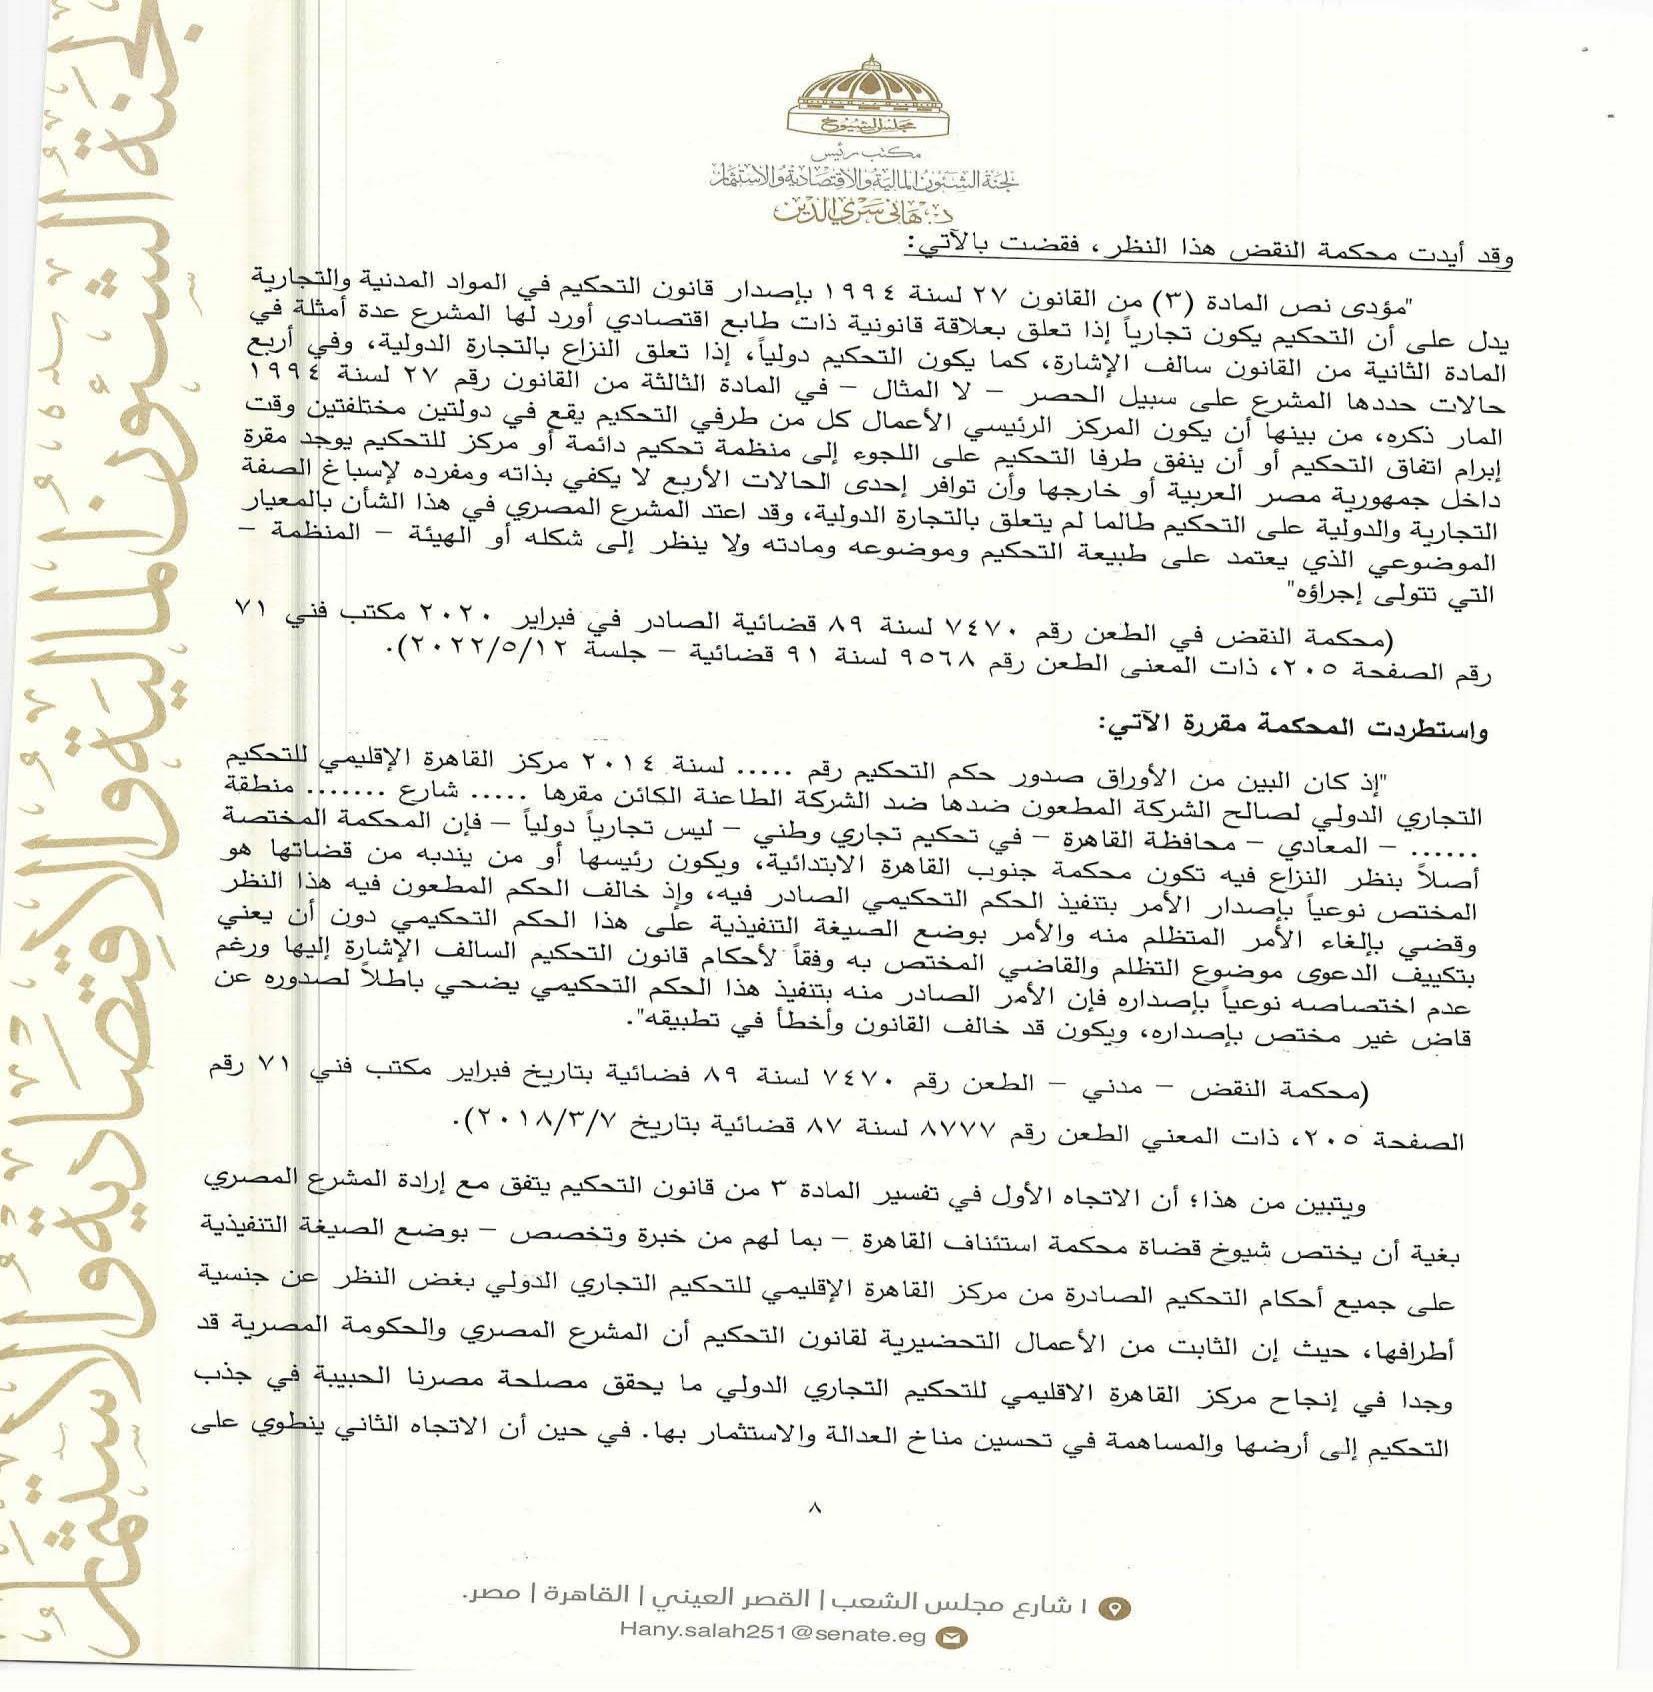 مجلس الشيوخ
مكتب رئيس
لجنة الشئون المالية والاقتصادية والاستثمار
د. هاني سري الدين
وقد أيدت محكمة النقض هذا النظر ، فقضت بالآتي:
"مؤدى نص المادة (٣) من القانون ٢٧ لسنة ١٩٩٤ بإصدار قانون التحكيم في المواد المدنية والتجارية
يدل على أن التحكيم يكون تجارياً إذا تعلق بعلاقة قانونية ذات طابع اقتصادي أورد لها المشرع عدة أمثلة في
المادة الثانية من القانون سالف الإشارة، كما يكون التحكيم دولياً، إذا تعلق النزاع بالتجارة الدولية، وفي أربع
حالات حددها المشرع على سبيل الحصر – لا المثال – في المادة الثالثة من القانون رقم ٢٧ لسنة ١٩٩٤
المار ذكره، من بينها أن يكون المركز الرئيسي الأعمال كل من طرفي التحكيم يقع في دولتين مختلفتين وقت
إبرام اتفاق التحكيم أو أن ينفق طرفا التحكيم على اللجوء إلى منظمة تحكيم دائمة أو مركز للتحكيم يوجد مقرة
داخل جمهورية مصر العربية أو خارجها وأن توافر إحدى الحالات الأربع لا يكفي بذاته ومفرده لإسباغ الصفة
التجارية والدولية على التحكيم طالما لم يتعلق بالتجارة الدولية، وقد اعتد المشرع المصري في هذا الشأن بالمعيار
الموضوعي الذي يعتمد على طبيعة التحكيم وموضوعه ومادته ولا ينظر إلى شكله أو الهيئة – المنظمة –
التي تتولى إجراؤه"
(محكمة النقض في الطعن رقم ٧٤٧٠ لسنة ٨٩ قضائية الصادر في فبراير ٢٠٢٠ مكتب فني ٧١
رقم الصفحة ٢٠٥، ذات المعنى الطعن رقم ٩٥٦٨ لسنة ٩١ قضائية – جلسة ٢٠٢٢/٥/١٢).
واستطردت المحكمة مقررة الآتي:
"إذ كان البين من الأوراق صدور حكم التحكيم رقم ..... لسنة ٢٠١٤ مركز القاهرة الإقليمي للتحكيم
التجاري الدولي لصالح الشركة المطعون ضدها ضد الشركة الطاعنة الكائن مقرها ..... شارع ....... منطقة
...... – المعادي – محافظة القاهرة – في تحكيم تجاري وطني – ليس تجارياً دولياً – فإن المحكمة المختصة
أصلاً بنظر النزاع فيه تكون محكمة جنوب القاهرة الابتدائية، ويكون رئيسها أو من يندبه من قضاتها هو
المختص نوعياً بإصدار الأمر بتنفيذ الحكم التحكيمي الصادر فيه، وإذ خالف الحكم المطعون فيه هذا النظر
وقضي بإلغاء الأمر المتظلم منه والأمر بوضع الصيغة التنفيذية على هذا الحكم التحكيمي دون أن يعني
بتكييف الدعوى موضوع التظلم والقاضي المختص به وفقاً لأحكام قانون التحكيم السالف الإشارة إليها ورغم
عدم اختصاصه نوعياً بإصداره فإن الأمر الصادر منه بتنفيذ هذا الحكم التحكيمي يضحي باطلاً لصدوره عن
قاض غير مختص بإصداره، ويكون قد خالف القانون وأخطأ في تطبيقه".
(محكمة النقض – مدني – الطعن رقم ٧٤٧٠ لسنة ٨٩ فضائية بتاريخ فبراير مكتب فني ٧١ رقم
الصفحة ٢٠٥، ذات المعني الطعن رقم ٨٧٧٧ لسنة ٨٧ قضائية بتاريخ ٢٠١٨/٣/٧).
ويتبين من هذا؛ أن الاتجاه الأول في تفسير المادة ٣ من قانون التحكيم يتفق مع إرادة المشرع المصري
بغية أن يختص شيوخ قضاة محكمة استئناف القاهرة – بما لهم من خبرة وتخصص – بوضع الصيغة التنفيذية
على جميع أحكام التحكيم الصادرة من مركز القاهرة الإقليمي للتحكيم التجاري الدولي بغض النظر عن جنسية
أطرافها، حيث إن الثابت من الأعمال التحضيرية لقانون التحكيم أن المشرع المصري والحكومة المصرية قد
وجدا في إنجاح مركز القاهرة الاقليمي للتحكيم التجاري الدولي ما يحقق مصلحة مصرنا الحبيبة في جذب
التحكيم إلى أرضها والمساهمة في تحسين مناخ العدالة والاستثمار بها. في حين أن الاتجاه الثاني ينطوي على
٨
١ شارع مجلس الشعب | القصر العيني | القاهرة | مصر.
Hany.salah251@senate.eg
لجنة الشئون المالية والاقتصادية والاستثمار